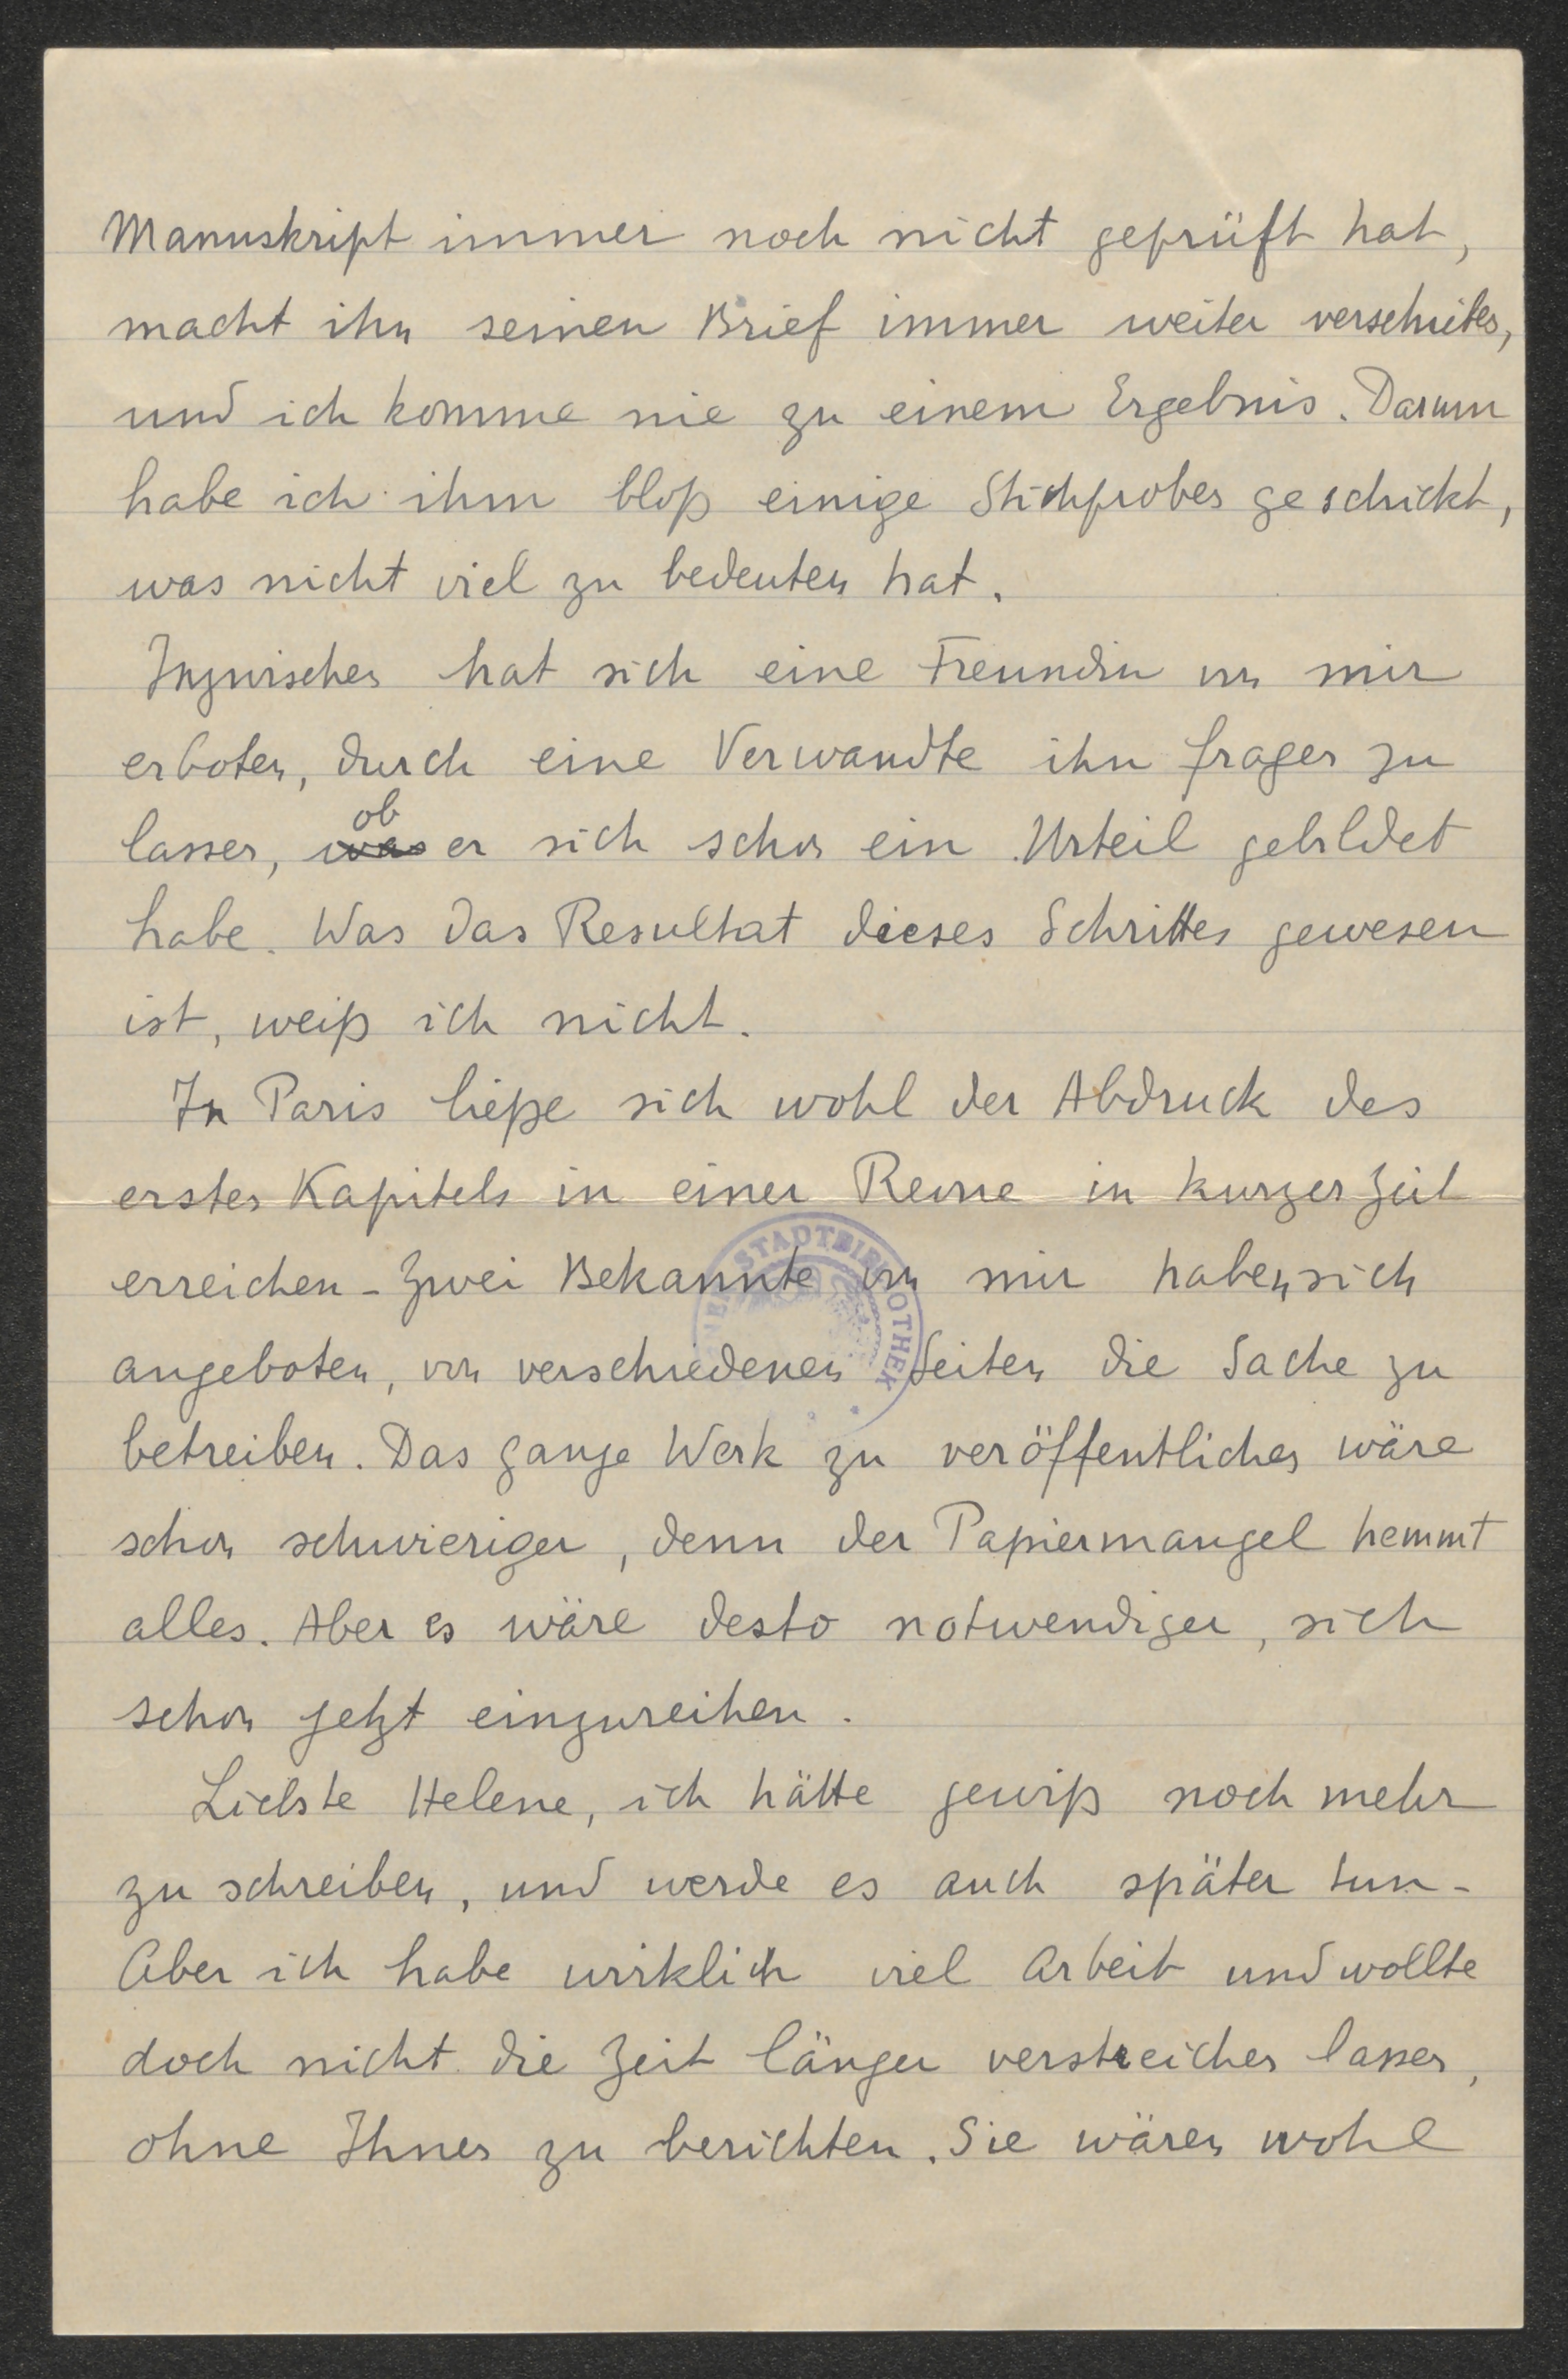 Manuskript immer noch nicht geprüft hat,
macht ihn seinen Brief immer weiter verschieben,
und ich komme nie zu einem Ergebnis. Darum
habe ich ihm bloß einige Stichproben geschickt,
was nicht viel zu bedeuten hat.
Inzwischen hat sich eine Freundin von mir
erboten, durch eine Verwandte ihn fragen zu
ob
lassen, was er sich schon ein Urteil gebildet
habe. Was das Resultat dieses Schrittes gewesen
ist, weiß ich nicht.
In Paris ließe sich wohl der Abdruck des
ersten Kapitels in einer Revue in kurzer Zeit
erreichen – Zwei Bekannte von mir haben sich
STADTBIBLIOTHEK
angeboten, von verschiedenen Seiten die Sache zu
betreiben. Das ganze Werk zu veröffentlichen wäre
schon schwieriger, denn der Papiermangel hemmt
alles. Aber es wäre desto notwendiger, sich
schon jetzt einzureihen.
Liebste Helene, ich hätte gewiß noch mehr
zu schreiben, und werde es auch später tun –
Aber ich habe wirklich viel Arbeit und wollte
doch nicht die Zeit länger verstreichen lassen,
ohne Ihnen zu berichten. Sie wären wohl